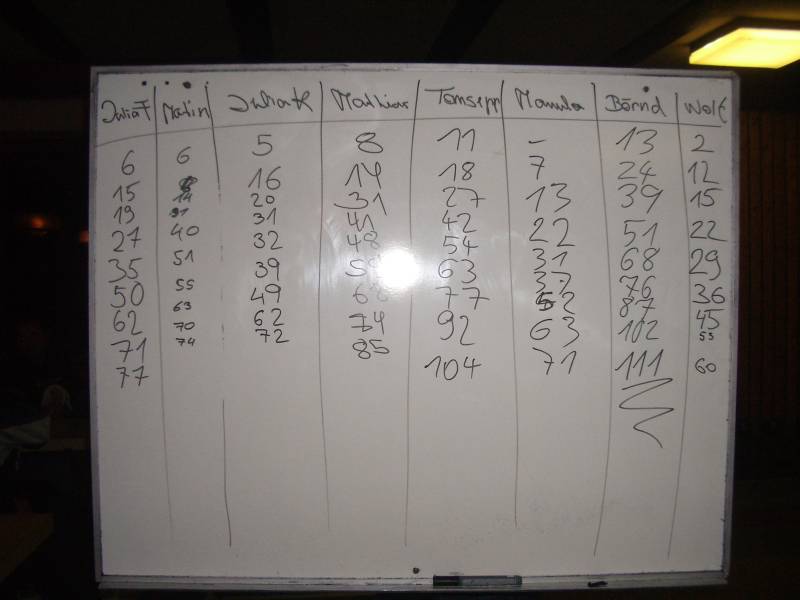 JuliaF Matin JuliaK Mathias Tonsepp Manula Börnd Wolf
6 6 5 8 11 - 13 2
15 14 16 14 18 7 24 12
19 31 20 31 27 13 39 15
27 40 31 41 42 22 51 22
35 51 32 48 54 31 68 29
50 55 39 63 37 76 36
62 63 49 68 77 52 87 45
71 70 62 74 92 63 102 53
77 74 72 85 104 71 111 60